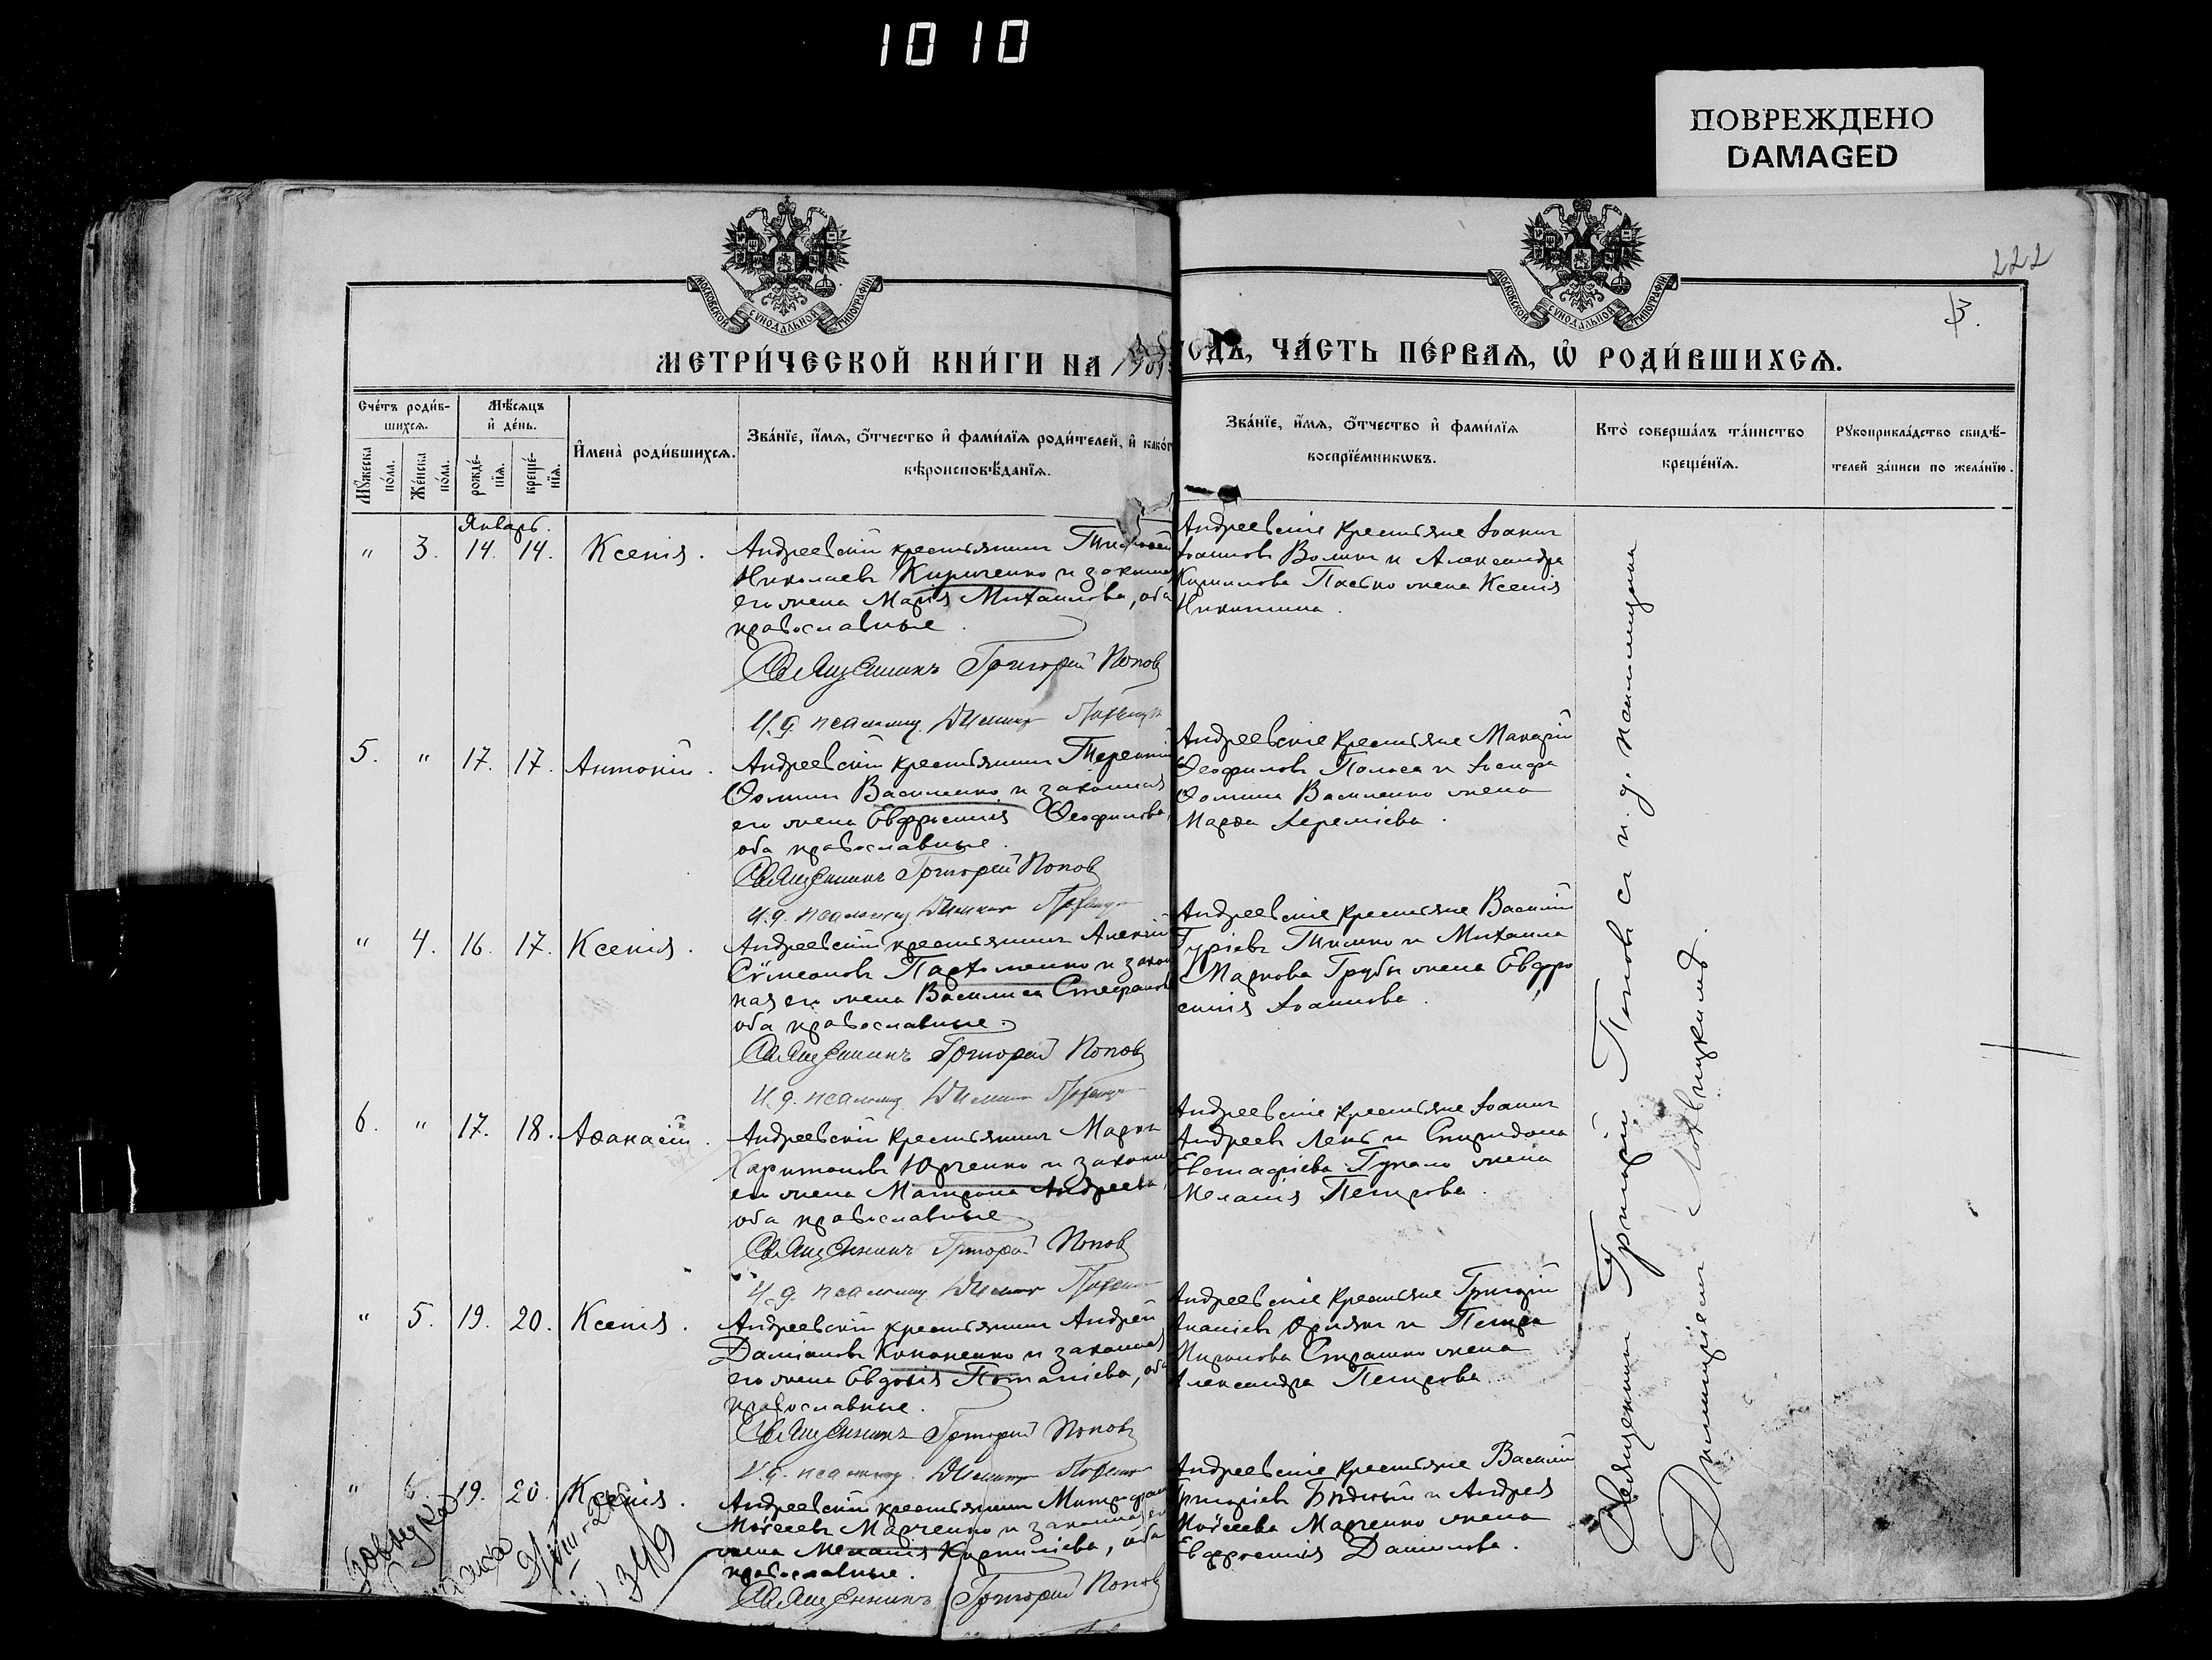 1010
ПОВРЕЖДЕНО
DAMAGED
222
3.
МОСКОВСКОЙ СѴНОДАЛЬНОЙ ТИПОГРАФІИ
МОСКОВСКОЙ СѴНОДАЛЬНОЙ ТИПОГРАФІИ
МЕТРИ́ЧЕСКОЙ КНИ́ГИ НА 190
ГОДЪ, ЧА́СТЬ ПЕ́РВАѦ, Ѡ҆ РОДИ́ВШИХСѦ.
Сче́тъ роди́в-
шихсѧ.
Мꙋ́жеска по́ла.
Же́нска по́ла.
Мѣ́сѧцъ
и҆ де́нь.
рожде́-
нїѧ.
креще́-
нїѧ.
И҆мена̀ роди́вшихсѧ.
Зва́нїе, и҆́мѧ, ѻ҆́тчество и҆ фамѝлїѧ роди́телей, и҆ како́г
вѣроисповѣ́данїѧ.
Зва́нїе, и҆́мѧ, ѻ҆́тчество и҆ фамѝлїѧ
воспрїе́мникѡвъ.
Кто̀ соверша́лъ та́инство
креще́нїѧ.
Рꙋкоприкла́дство свидѣ́-
телей за́писи по жела́нїю.
Январь.
" 3. 14. 14. Ксенія.
Андреевскій крестьянинъ Тимофей
Николаевъ Кириченко и законная
его жена Марія Михаилова, оба
православные.
Священникъ Григорій Попов
И. д. псаломщ. Димитр
Андреевскіе крестьяне Іоаннъ
Іоанновъ Волинъ и Александра
Кирилова Пасько жена Ксенія
Никитина.
5. " 17. 17. Антоній.
Андреевскій крестьянинъ Терентій
Ѳоминъ Василенко и законная
его жена Евфросинія Ѳеофилова,
оба православные.
Священникъ Григорій Попов
И. д. псаломщ. Димитр
Андреевскіе крестьяне Макарій
Ѳеофиловъ и Іосифа
Ѳомина Василенко жена
Марѳа Іереміева.
" 4. 16. 17. Ксенія.
Андреевскій крестьянинъ Алексій
Сѵмеоновъ Пархоменко и закон
ная его жена Василиса Стефанов
оба православные.
Священникъ Григорій Попов
И. д. псаломщ. Димитр
Андреевскіе крестьяне Василій
Гуріевъ Тимко и Михаила
Маркова Грубы жена Евфро
синія Іоаннова.
6. " 17. 18. Аѳанасій.
Андреевскій крестьянинъ Маркъ
Харитоновъ Юрченко и законн
его жена Матрона Андреева,
оба православные
Священникъ Григорій Попов
И. д. псаломщ. Димитр
Андреевскіе крестьяне Іоаннъ
Андреевъ и Спиридона
Евстафіева жена
Меланія Петрова.
" 5. 19. 20. Ксенія.
Андреевскій крестьянинъ Андрей
Даміановъ Кононенко и законная
его жена Евдокія Потапіева, оба
православные.
Священникъ Григорій Попов
И. д. псаломщ. Димитр
Андреевскіе крестьяне Григорій
и Петра
Миронова Страшко жена
Александра Петрова.
" 6. 19. 20. Ксенія.
Андреевскій крестьянинъ Митрофан
Моѵсеевъ Марченко и законная его
жена Меланія Корниліева, оба
православные.
Священникъ Григорій Попов
Андреевскіе крестьяне Василій
Григоріевъ и Андрея
Моѵсеева Марченко жена
Евфросинія Даниилова.
3419
Священникъ Григорій Поповъ съ и. д. псаломщика
Димитріемъ Лохвицкимъ.